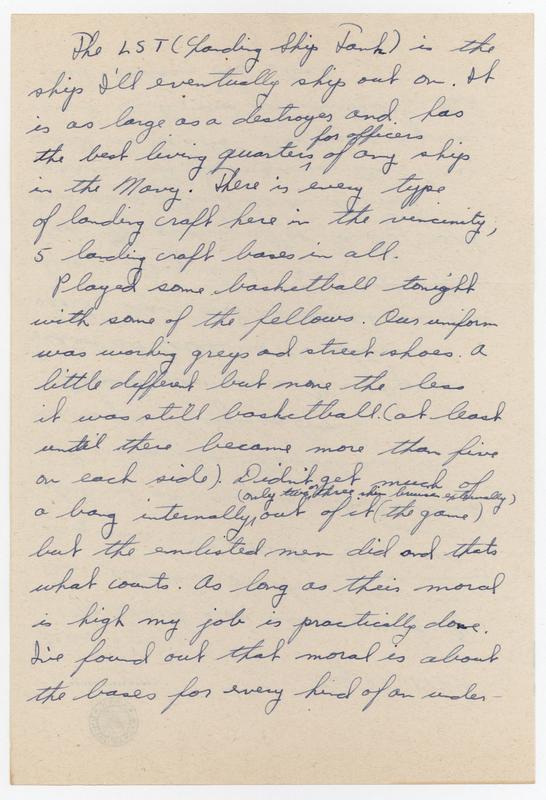 The LST (Landing Ship Tank) is the
ship I'll eventually ship out on. It
is as large as a destroyer and has
for officers
the best living quarters ^ of any ship
in the Navy. There is every type
of landing craft here in the vencinity,
5 landing craft bases in all.
Played some basketball tonight
with some of the fellows. Our uniform
was working greys and street shoes. A
little different but none the less
it was still basketball. (at least
until there became more than five
on each side). Didn't get much of
(only two or three shin bruises externally)
a bang internally, out of it (the game)
but the enlisted men did and thats
what counts. As long as their moral
is high my job is practically done.
I've found out that moral is about
the bases for every kind of an under-